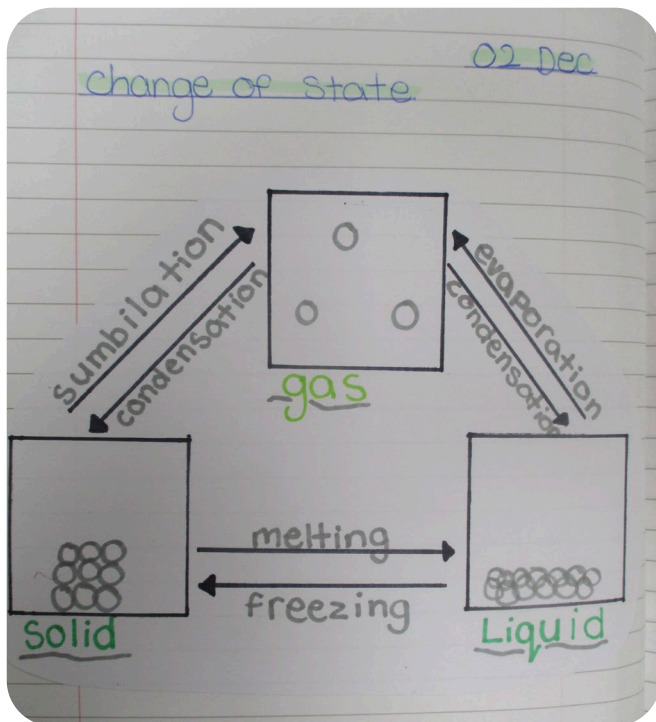 02 Dec
Change of State
sumbilation
condensation
evaporation
condensation
gas
melting
freezing
Solid
Liquid